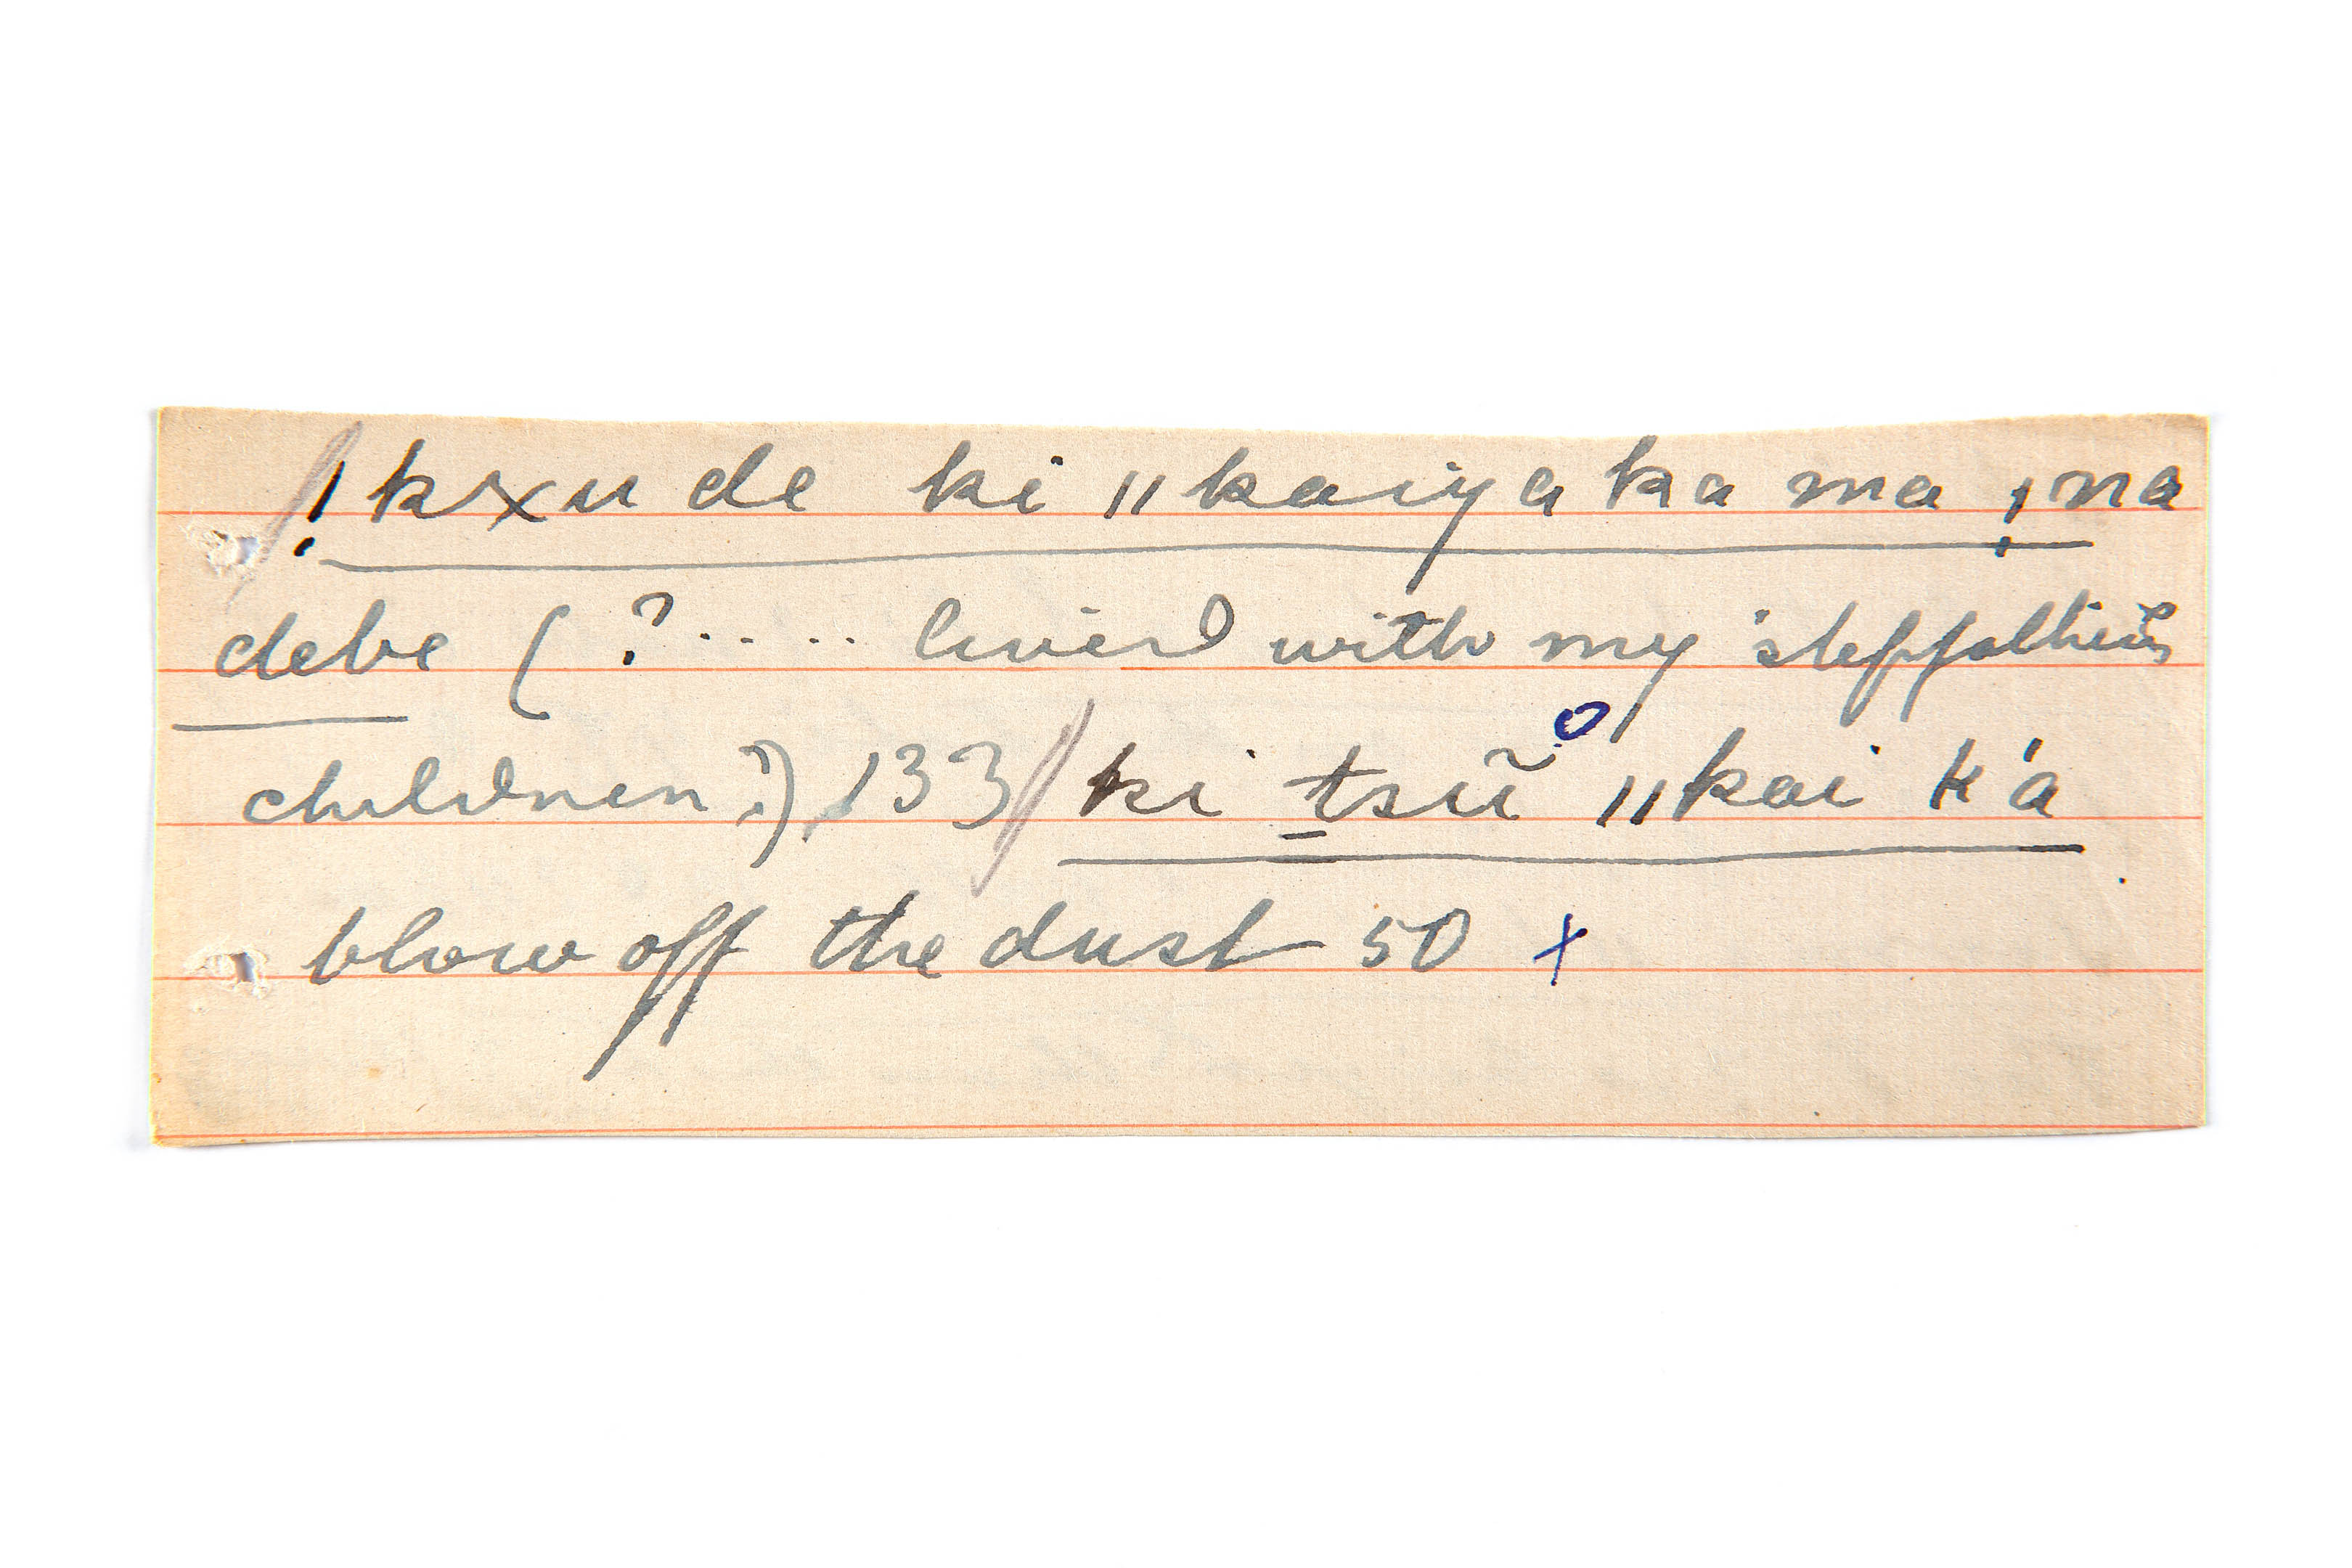 !kxu de ki ‖kaiya ka ma !na
debe (?..... lived with my stepfather's
children?), 133/ ki tsũ° ‖kai k'a
blow off the dust 50 x